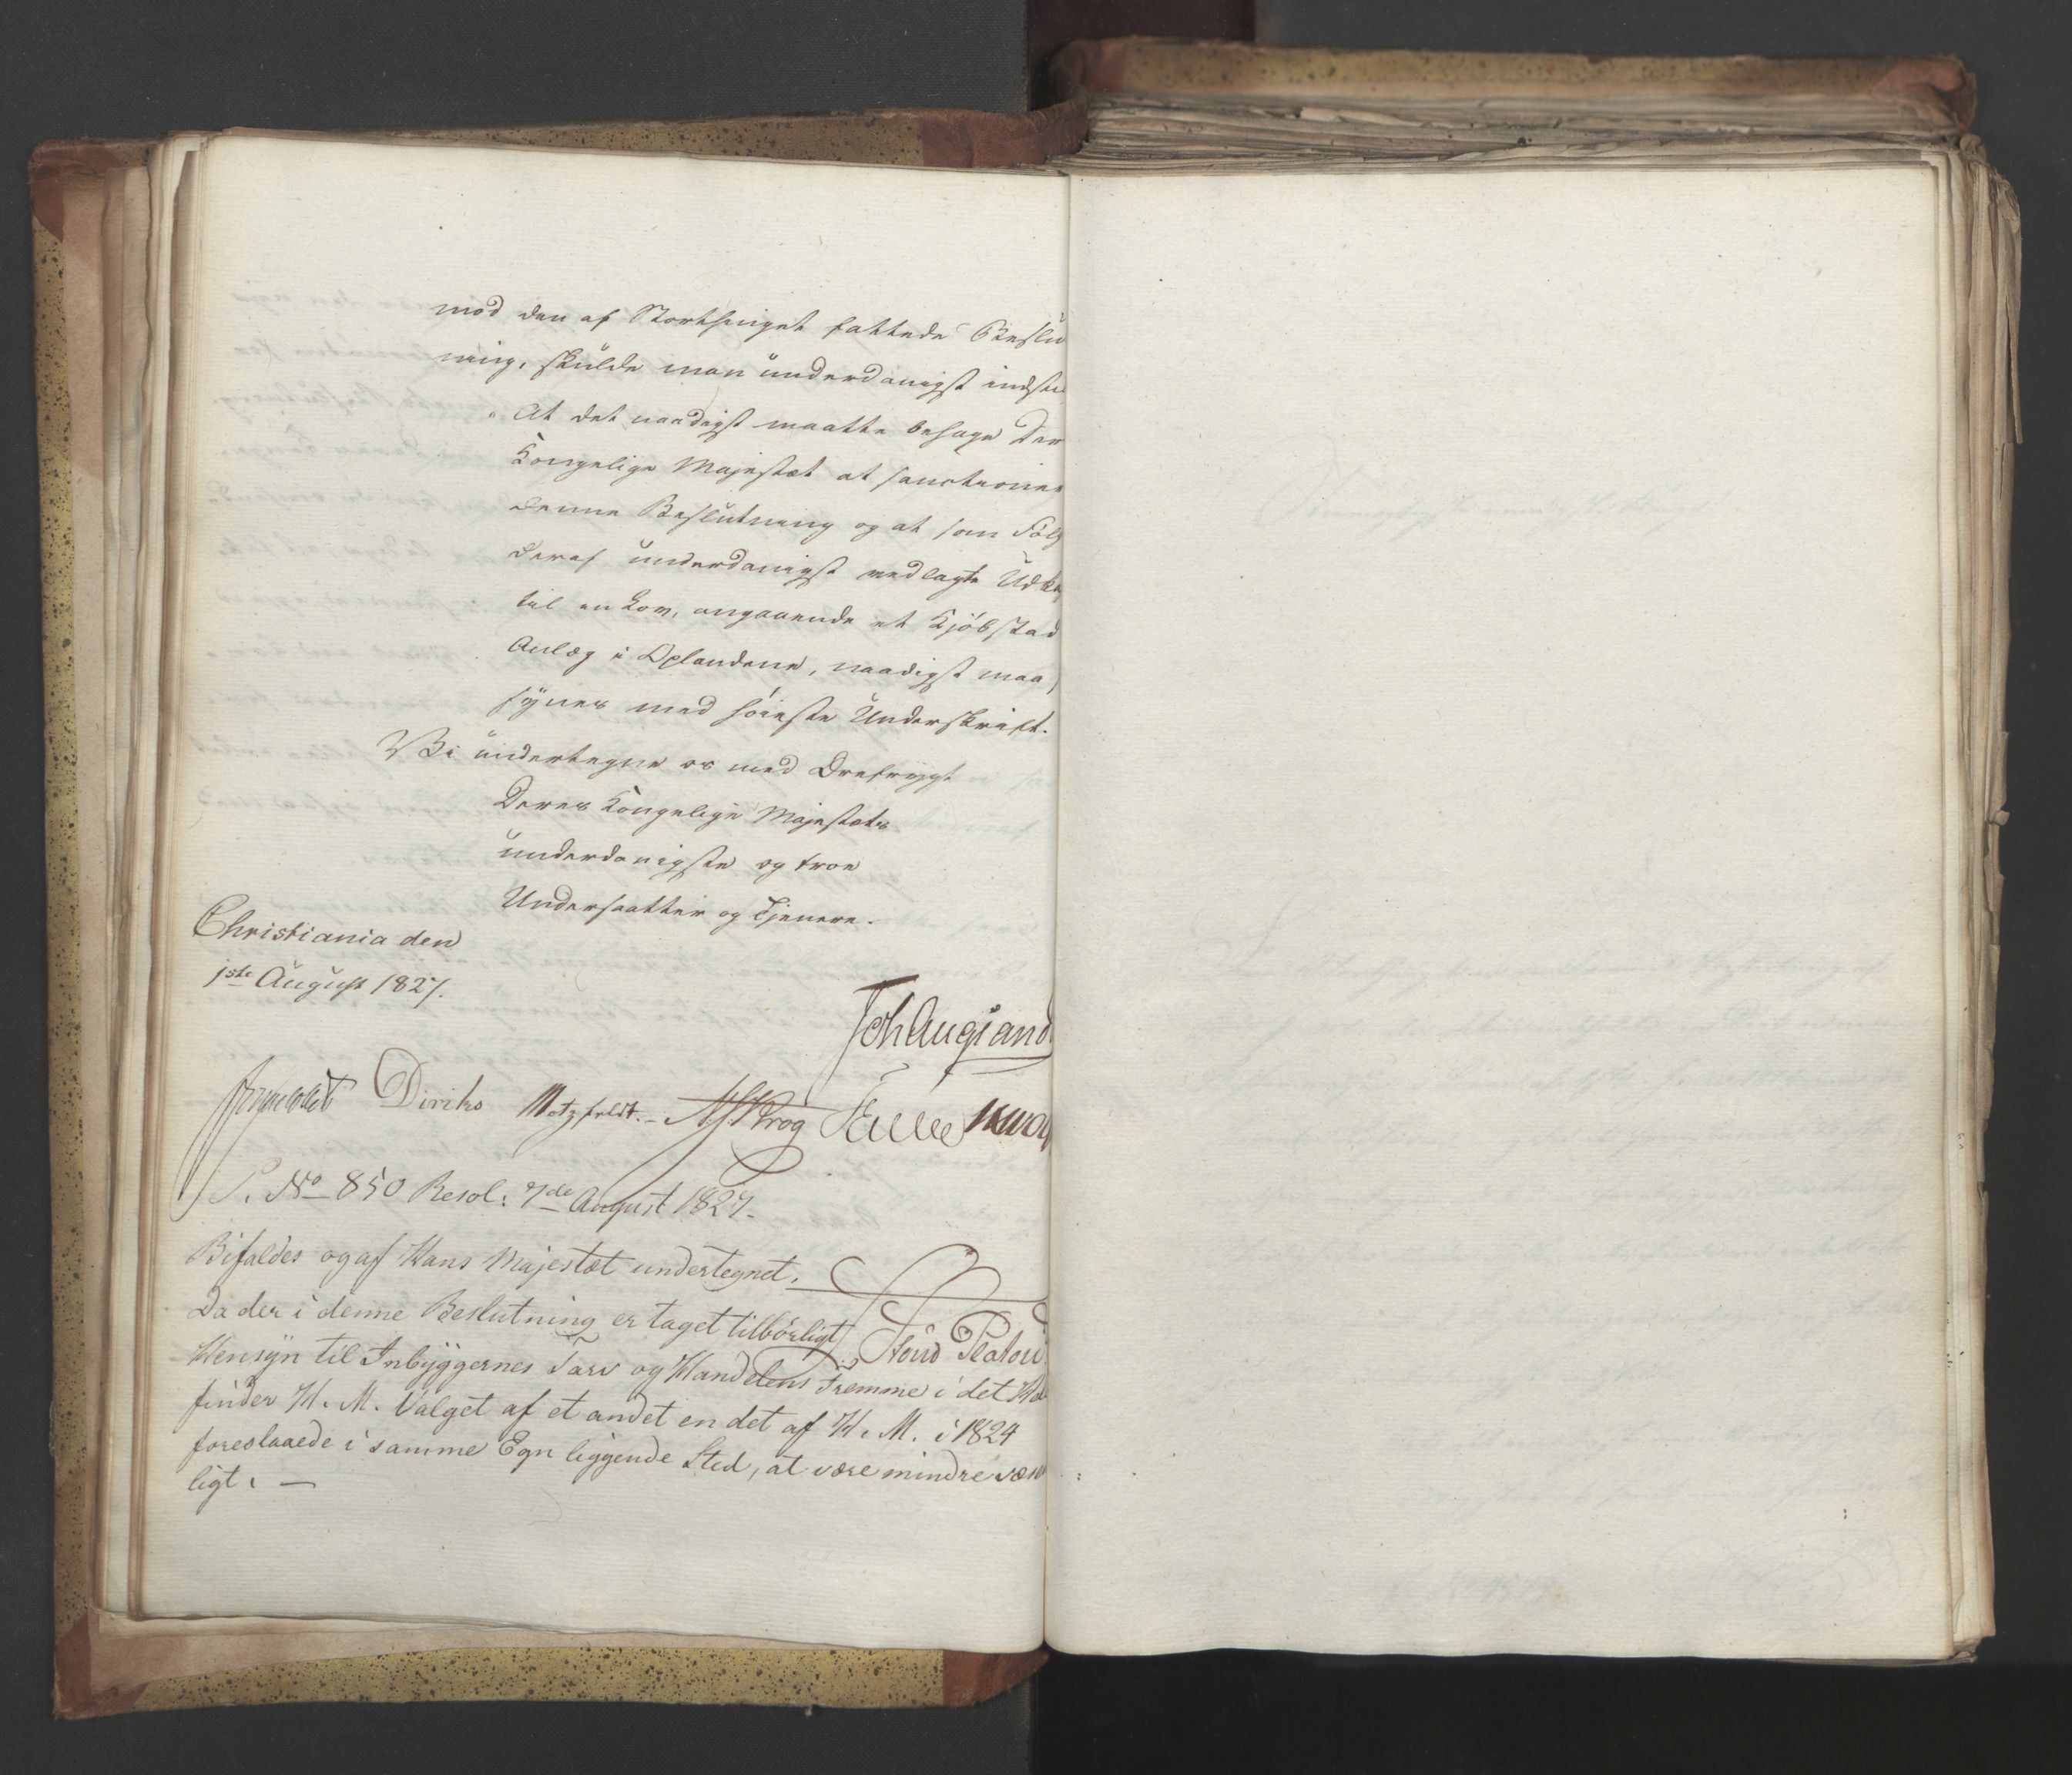 mod den af Storthinget fattede Beslu
ning, skulde man underdanigst indstil
" At det naadigst maatte behage Der
Kongelige Majestæt at sanctioner
denne Beslutning og at som Følg
deraf underdanigst vedlagte Udka
til en Lov, angaaende et Kjöbstad
Anlæg i Oplandene, naadigst maa
synes med höieste Underskrift.
Vi undertegne os med Ærefrygt
Deres Kongelige Majestæts
underdanigste og troe
Undersaatter og Tjenere.
Christiania den
1ste August 1827.
Joh Aug Sand
Diriks Motzfeldt. Krog
P. No 850 Resol: 7de August 1827.
Bifaldes og af Hans Majestæt undertegnet.
Da der i denne Beslutning er taget tilbørligt
Hensyn til Inbyggernes Tarv og Handelens Fremme i det He
finder H. M. Valget af et andet en det af H. M. i 1824
foreslaaede i samme Egn liggende Sted, at være mindre væsen
ligt. —
Platou